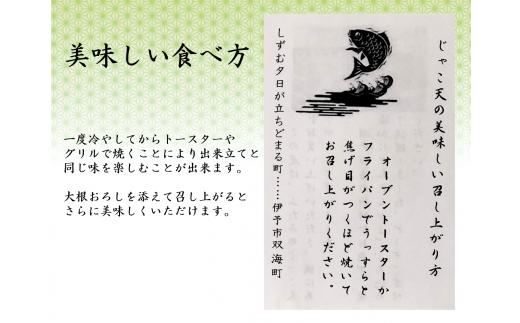 美味しい食べ方
一度冷やしてからトースターや
グリルで焼くことにより出来立てと
同じ味を楽しむことが出来ます。
大根おろしを添えて召し上がると
さらに美味しくいただけます。
じゃこ天の美味しい召し上がり方
オーブントースターか
フライパンでうっすらと
焦げ目がつくほど焼いて
お召し上がりください。
しずむ夕日が立ちどまる町……伊予市双海町